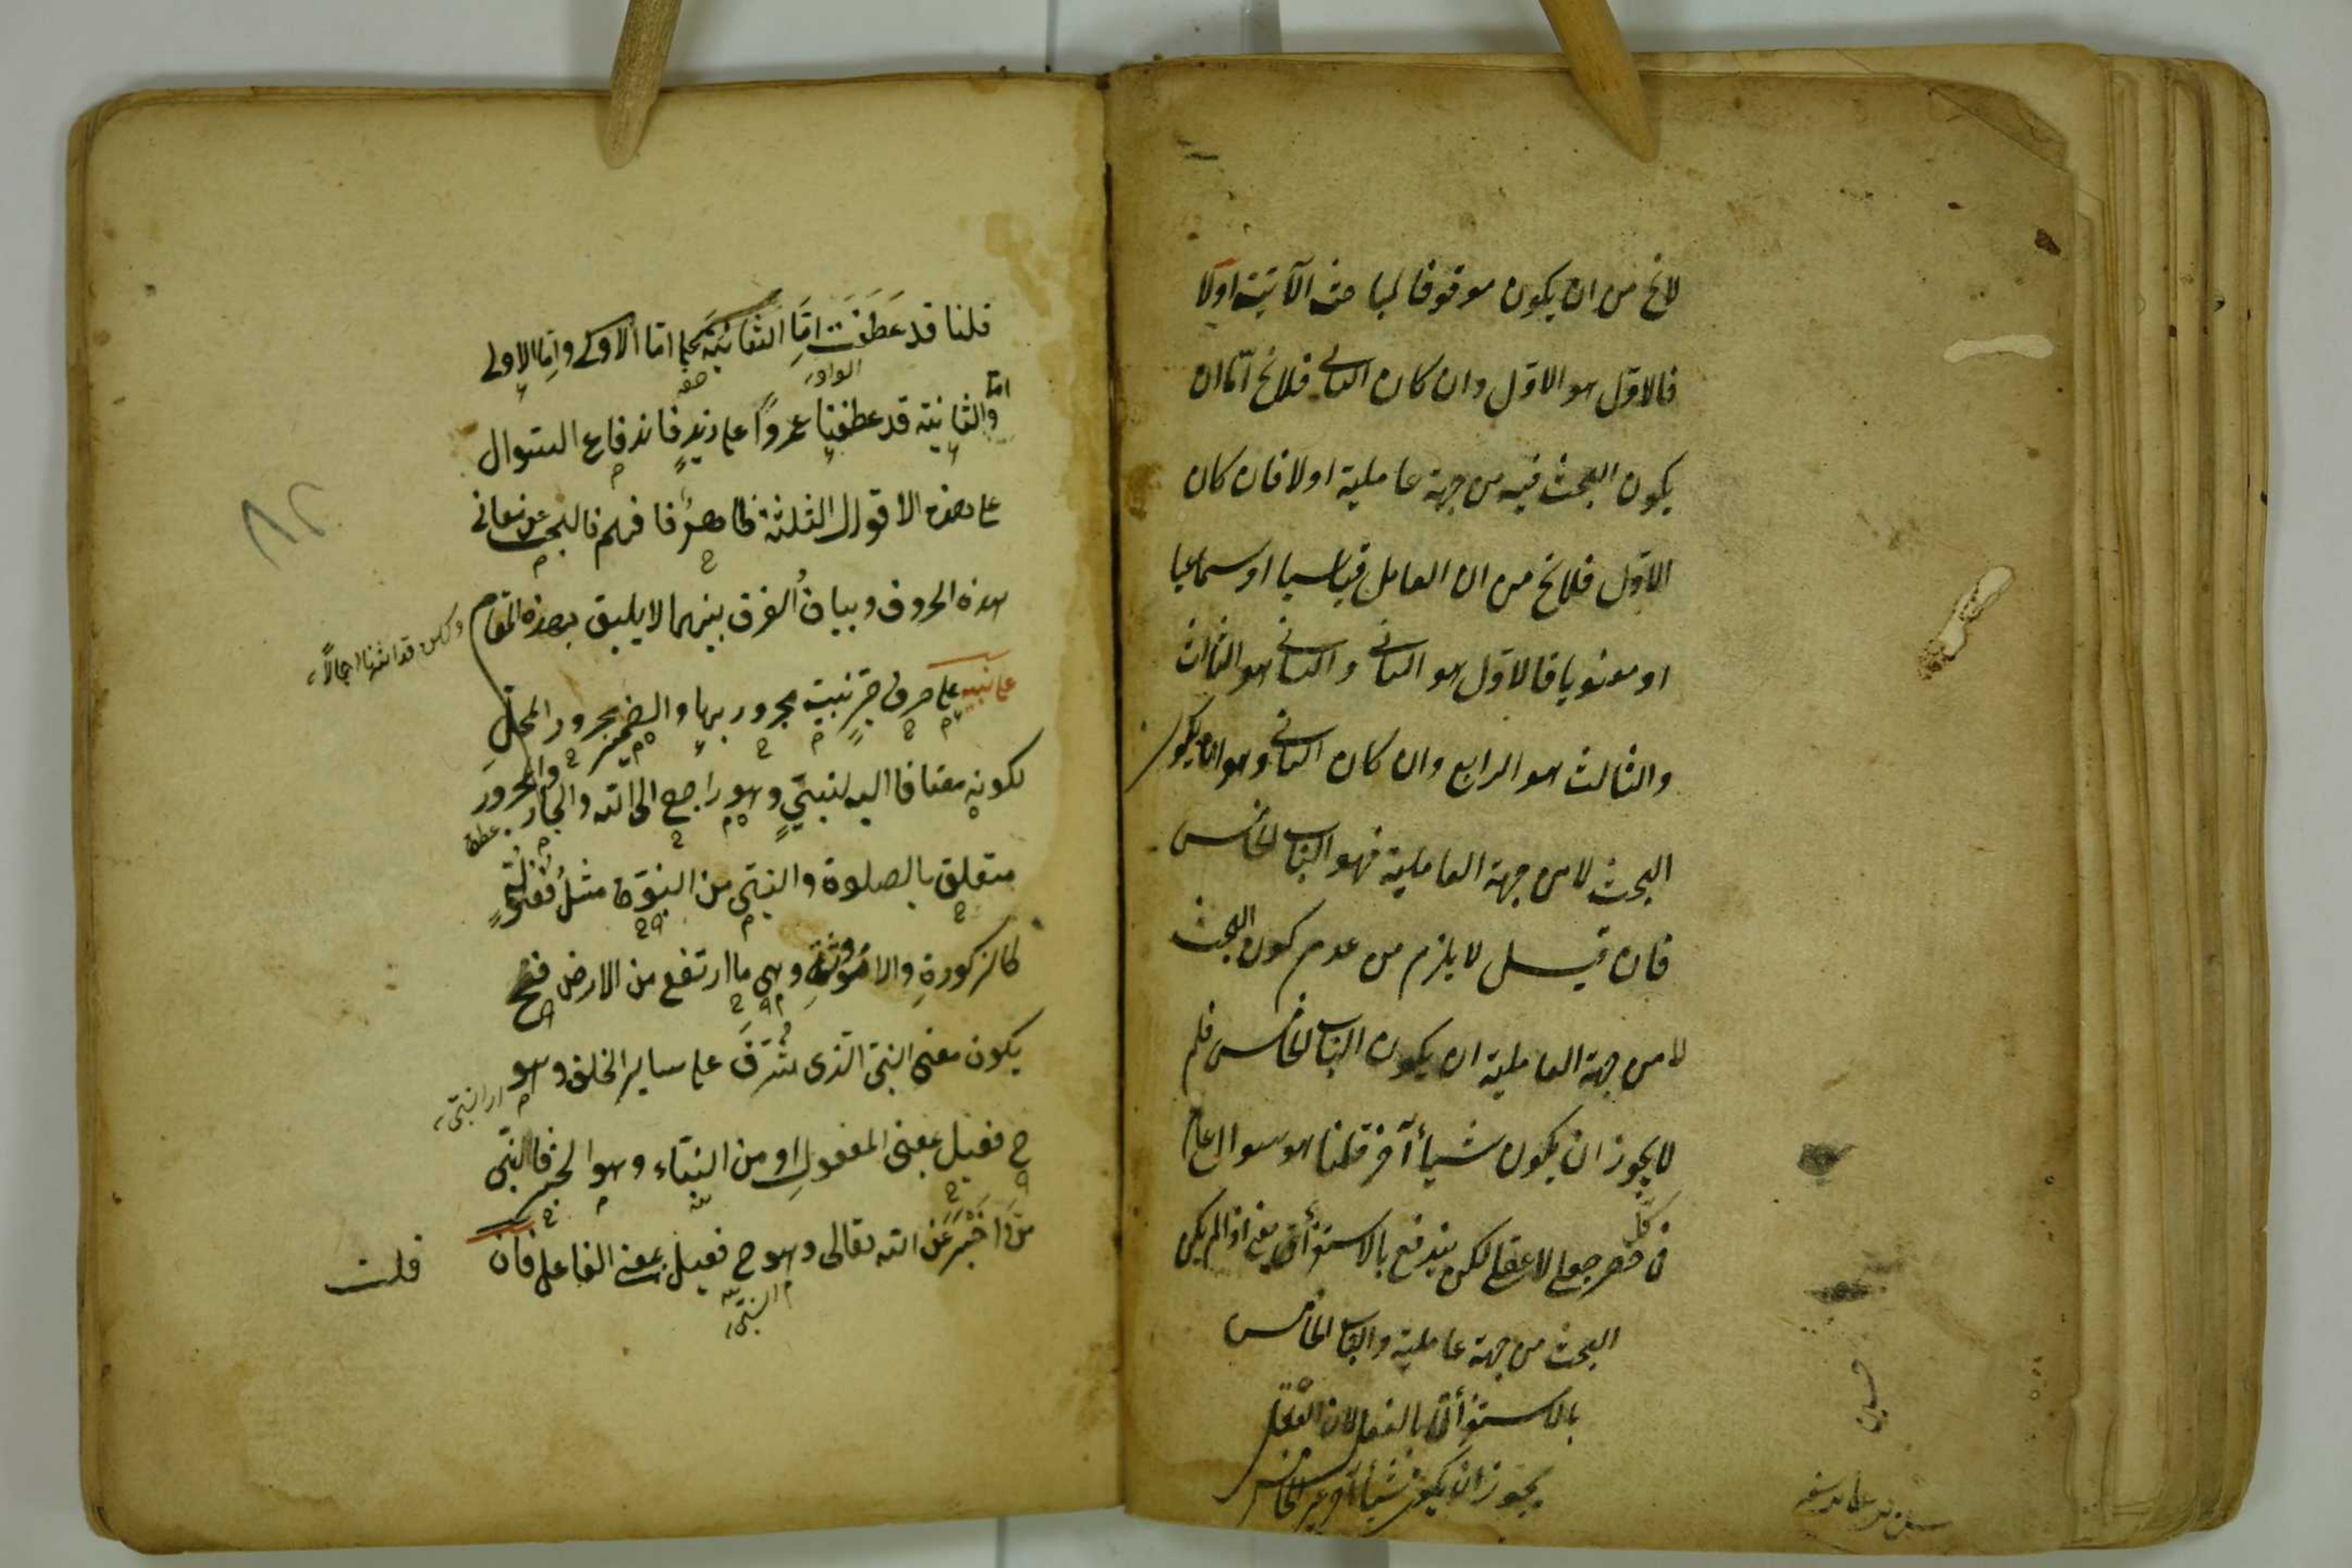 لايخ من ان يكون موقوفا لمباحث الآتية اولا
فالاول هو الاول وان كان الثانى فلايخ اما ان
يكون البحث فيه من جهة عاملية اولا فان كان
الاول فلايخ من ان العامل قياسيا او سماعيا
او معنويا فالاول هو الثانى والثانى هو الثالث
والثالث هو الرابع وان كان الثانى وهو ان يكون
البحث لا من جهة العاملية فهو الباب الخامس
فان قيل لا يلزم من عدم كون البحث
لا من جهة العاملية ان يكون الباب الخامس فلم
لا يجوز ان يكون شيأ آخر قلنا هو سوال عام
فى كل حصر جعلى لا عقلى لكن يندفع بالاستقرأ يعنى اذا لم يكن
البحث من جهة عاملية والباب الخامس
بالاستقرأ بالفعل لان العقل
يجوز ان يكون شيأ آخر غير الخامس
قلنا قد عطفت اما الثانية على اما الاولى واما الاولى
الواو
واما الثانية قد عطفتا عمروا على زيد فاندفاع السوال
على هذه الاقوال الثلثة ظاهر فافهم فالبحث عن معانى
هذه الحروف وبيان الفرق بينهما لا يليق بهذه المقام
ولكن قد اشرنا اجمالا
على نبيه على حرف جر نبيه مجرور بها والضمير مجرور المحل
لكونه مضافا اليه لنبى وهو راجع الى الله والجار والمجرور
متعلق بالصلوة والنبى من النبوة مثل
كالذكورة والانوثة وهى ما ارتفع من الارض فح
يكون معنى النبى الذى شرف على ساير الخلق وهو
اى النبى
ح فعيل بمعنى المفعول او من النباء وهو الخبر فالنبى
من اخبر عن الله تعالى وهو ح فعيل بمعنى الفاعل فان
النبى
قلت